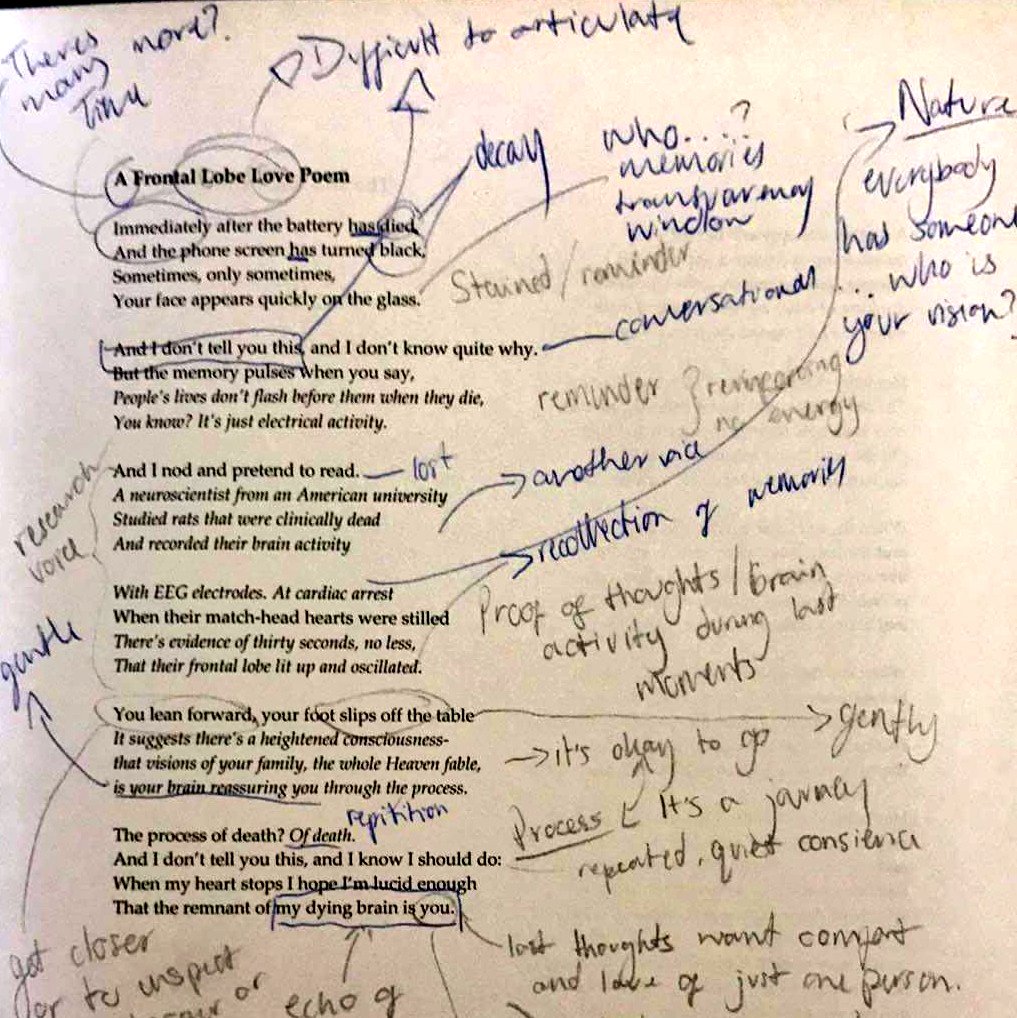 Theres more?
many
Time
Difficult to articulate
A Frontal Lobe Love Poem
Immediately after the battery has died,
And the phone screen has turned black,
Sometimes, only sometimes,
Your face appears quickly on the glass.
decay
who....?
memories
transparency
window
Stained / reminder
Nature
everybody
has someone
... who is
your vision?
And I don't tell you this, and I don't know quite why.
But the memory pulses when you say,
People's lives don't flash before them when they die,
You know? It's just electrical activity.
conversational
reminder
no energy
And I nod and pretend to read.
A neuroscientist from an American university
Studied rats that were clinically dead
And recorded their brain activity
lost
another
recollection of memories
research
voice
With EEG electrodes. At cardiac arrest
When their match-head hearts were stilled
There's evidence of thirty seconds, no less,
That their frontal lobe lit up and oscillated.
Proof of thoughts / brain
activity during last
moments
gentle
You lean forward, your foot slips off the table
It suggests there's a heightened consciousness-
that visions of your family, the whole Heaven fable,
is your brain reassuring you through the process.
gently
it's okay to go
repitition
The process of death? Of death.
And I don't tell you this, and I know I should do:
When my heart stops I hope I'm lucid enough
That the remnant of my dying brain is you.
Process It's a journey
repeated, quiet
last thoughts want comfort
and love of just one person.
got closer
or to inspect
or
echo of